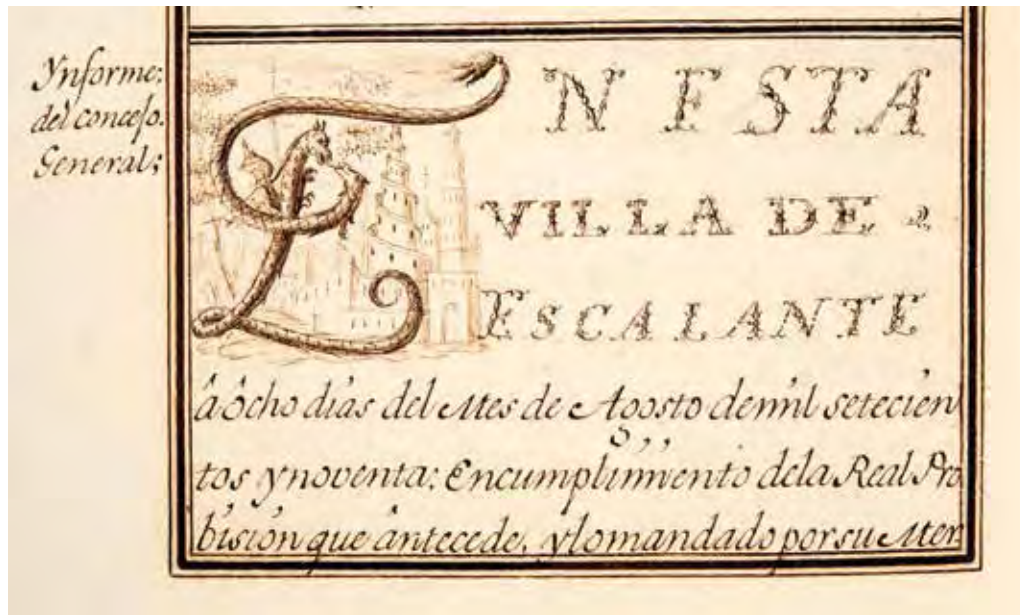 Ynforme:
del concejo.
General;
EN ESTA
VILLA DE
ESCALANTE
â ôcho dias del Mes de Agosto de mil setecien
tos y noventa: En cumplimiento dela Real Pro
bision que ântecede, y lo mandado por su Mer